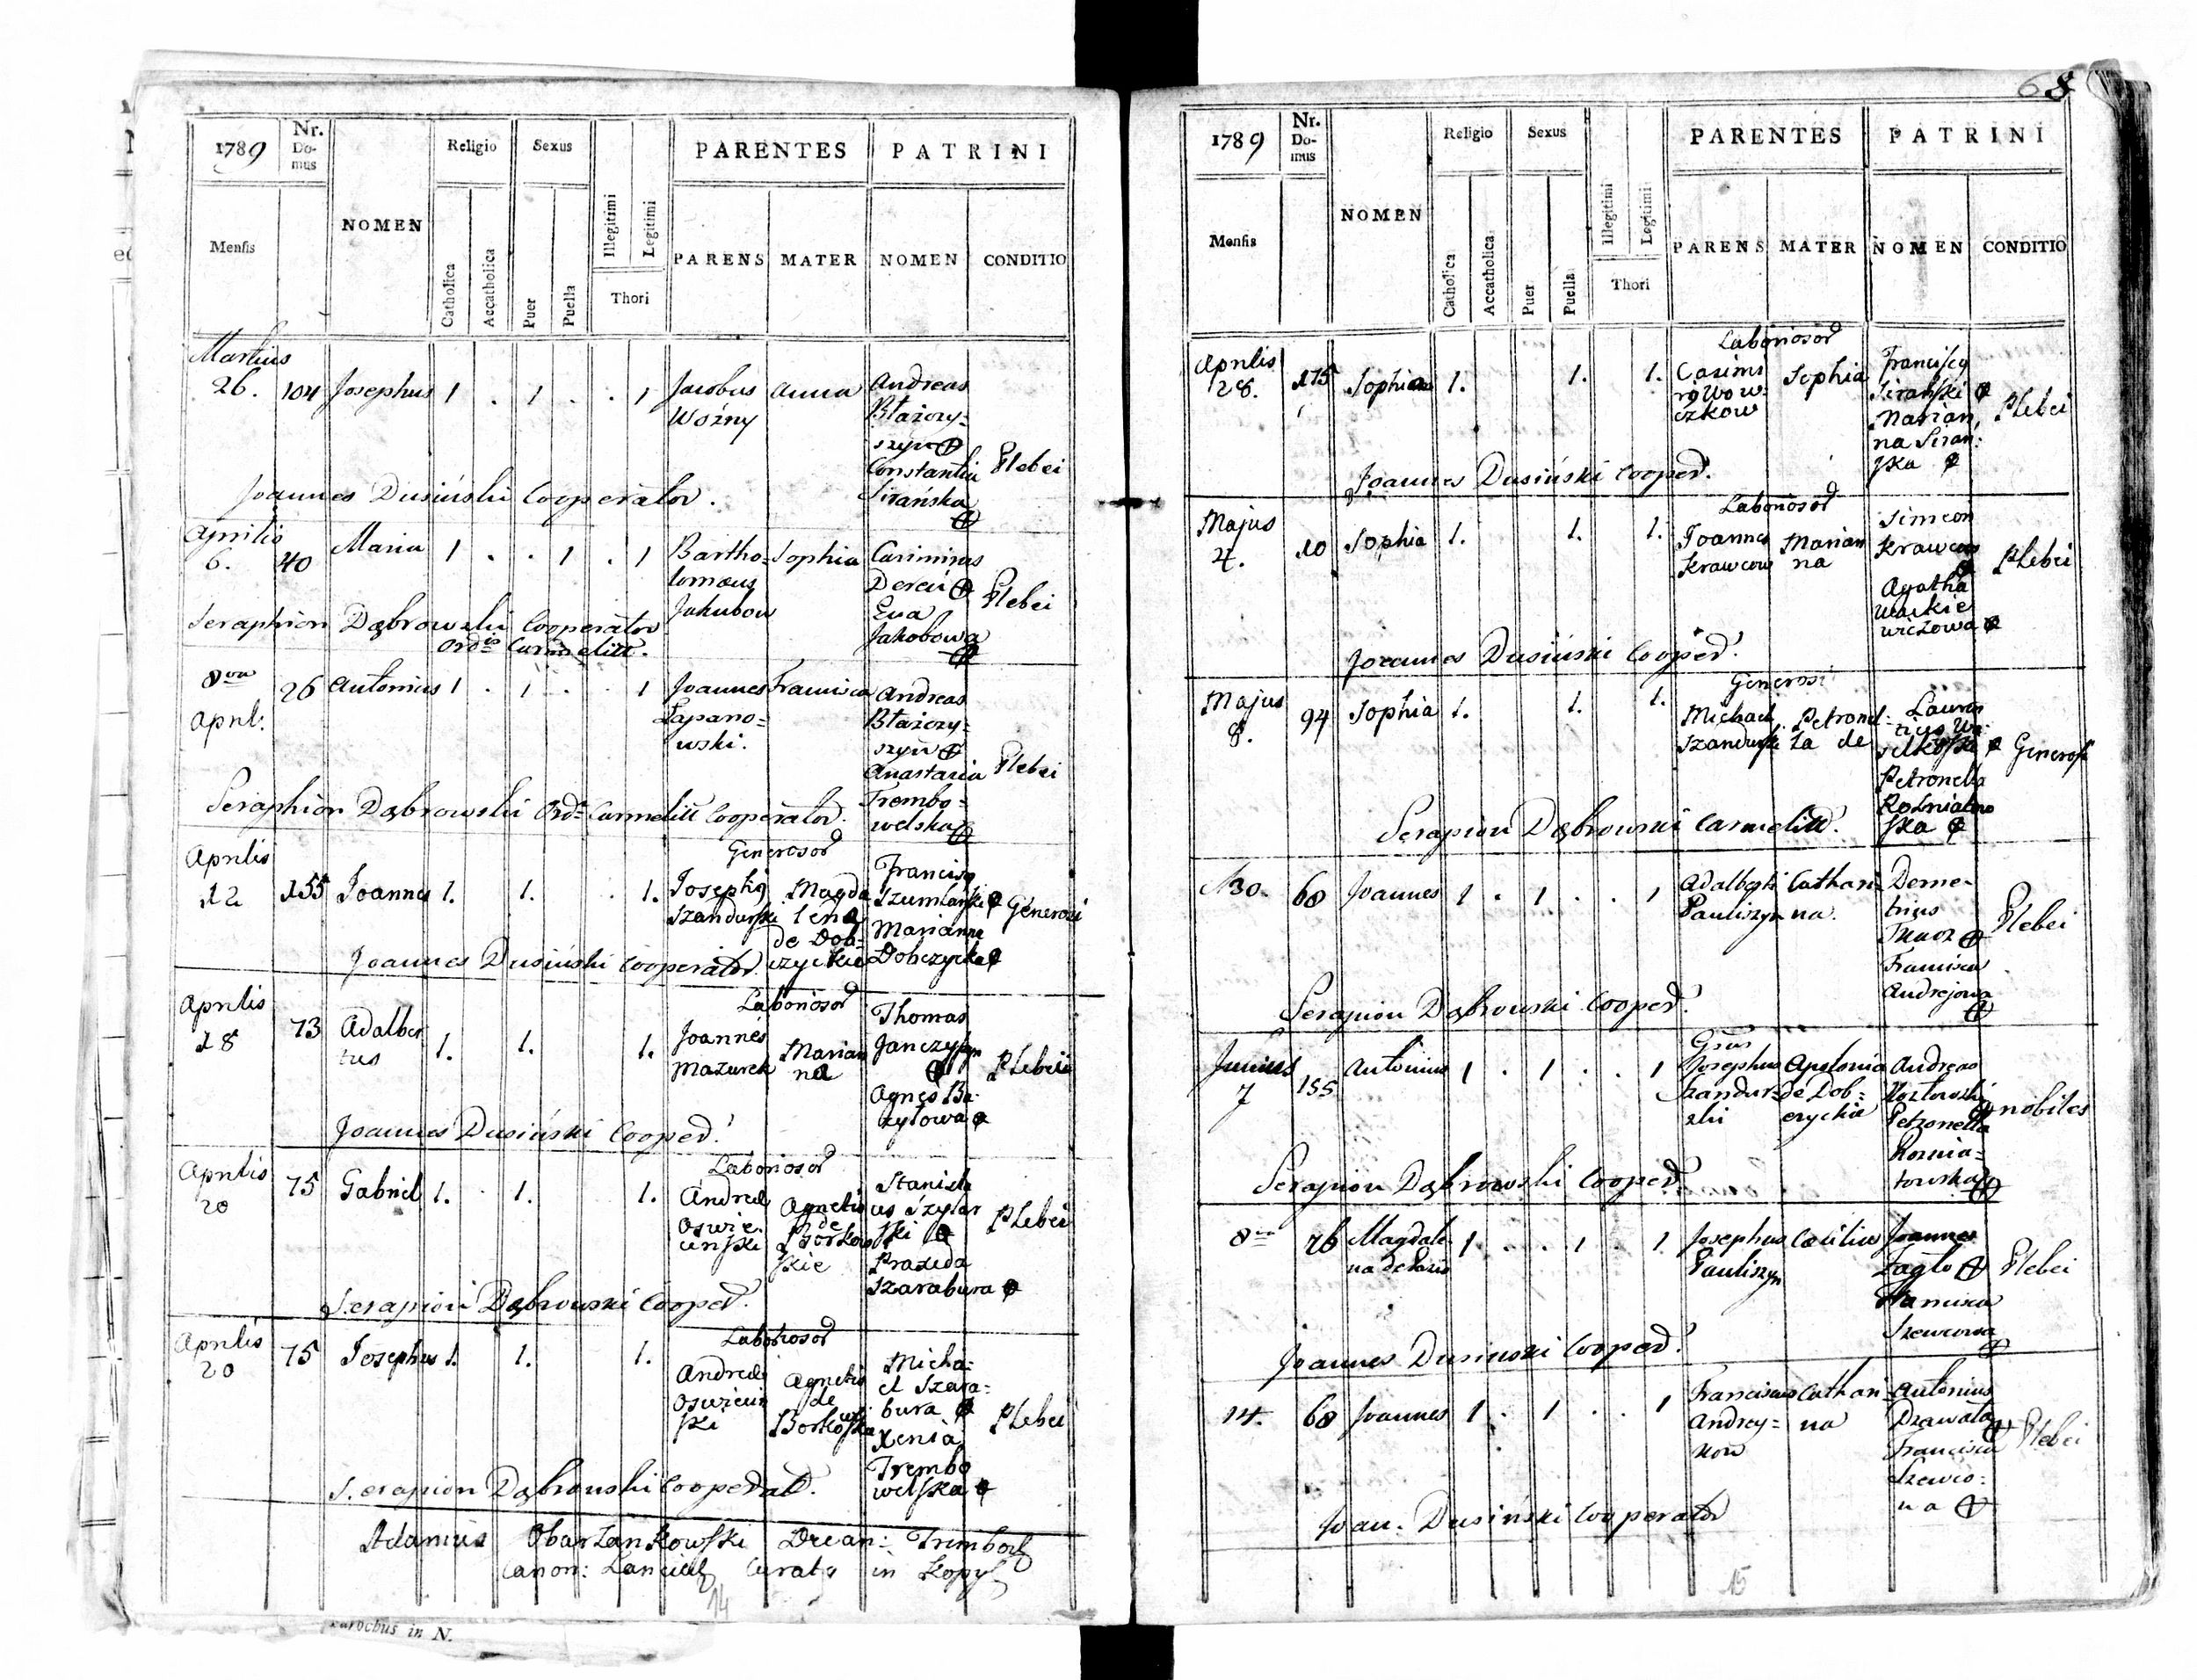 68
1789
Nr. Do-mus
NOMEN
Religio
Sexus
PARENTES
PATRINI
Mensis
Catholica
Accatholica
Puer
Puella
Illegitimi
Legitimi
Thori
PARENS
MATER
NOMEN
CONDITIO
Martius 26. 104 Josephus 1 . 1 . . 1 Jacobus Woźny Anna Andreas Błażozy=szyn Constantia Sirańska Plebei
Joannes Dusiński Cooperator.
Aprilis 6. 40 Maria 1 . . 1 . 1 Bartho=lomæus Jakubow Sophia Casimirus Eva Jakobowa Plebei
Seraphion Dąbrowski Cooperator
Ordis Carmelitt.
8va Apri: 26 Antonius 1 . 1 . . 1 Joannes Łapano=wski. Francisca Andreas Błażozy=szyn Anastazia Trembo=welska Plebei
Seraphion Dąbrowski Ord: Carmelitt Cooperator.
Aprilis 12 155 Joannes 1. 1. . 1. Generosor Josephi Szandurski Magda lena de Dob=czyckie Francisq Szumlanski Marianna Dobczycka Generosi
Joannes Dusiński Cooperator
Aprilis 18 73 Adalber tus 1. 1. 1. Laboriosor Joannes Mazurek Marian na Thomas Janczyszyn Agnes Ba-zylowa Plebeii
Joannes Dusiński Cooper:
Aprilis 20 75 Gabriel 1. 1. 1. Laboriosor Andreæ Oswie-cinski Agnetis de Borkow skie Stanisla us Szylar ski Praxeda Szarabura Plebei
Serapion Dąbrowski Cooper:
Aprilis 20 75 Josephus 1. 1. 1. Laboriosor Andreæ Oswiecin ski Agnetis de Borkowska Micha-el Szara-bura Xenia Trembo welska Plebei
Serapion Dąbrowski Cooperat:
Adamus Obarzankowski Decan: Trembowl
Canon: Curatq in Kopy
14
parochus in N.
1789
Nr. Do-mus
NOMEN
Religio
Sexus
PARENTES
PATRINI
Mensis
Catholica
Accatholica
Puer
Puella
Illegitimi
Legitimi
Thori
PARENS
MATER
NOMEN
CONDITIO
Aprilis 28. 175 Sophia 1. 1. 1. Laboriosor Casimi ri Wow-czkow Sophia Francisq Siranski Marian, na Siran-ska Plebei
Joannes Dusiński Cooper.
Majus 4. 10 Sophia 1. 1. 1. Laboriosor Joannes Krawcow Marian na Simeon Krawcow Agatha wiczowa Plebei
Joannes Dusiński Cooper:
Majus 8. 94 Sophia 1. 1. 1. Generosi Michael Szandurski Petronel-la de Lauren tius Petronella Rozniatow ska Generosi
Serapion Dąbrowski Carmelitt:
30. 68 Joannes 1 . 1 . . 1 Adalbertus Pauliszyn Cathari-na. Deme-trius Tkacz Francisca Andrejowa Plebei
Serapion Dąbrowski Cooper:
Junius 7 155 Antonius 1 . 1 . . 1 Gsus Josephus Szandur=ski Apolonia de Dob=czyckie Andreas Kozłowski Petronella Roznia=towska nobiles
Serapion Dąbrowski Cooper:
8va 26 Magdale na 1 . . . 1 . 1. Josephus Pauliszyn Cæcilia Joannes Zagło Francisca Szewcowa Plebei
Joannes Dusinski Cooper:
14. 68 Joannes 1 . 1 . . 1 Franciscus Andrey=kow Cathari-na Antonius Drawała Francisca Szewco=na Plebei
Joan: Dusiński Cooperator
15